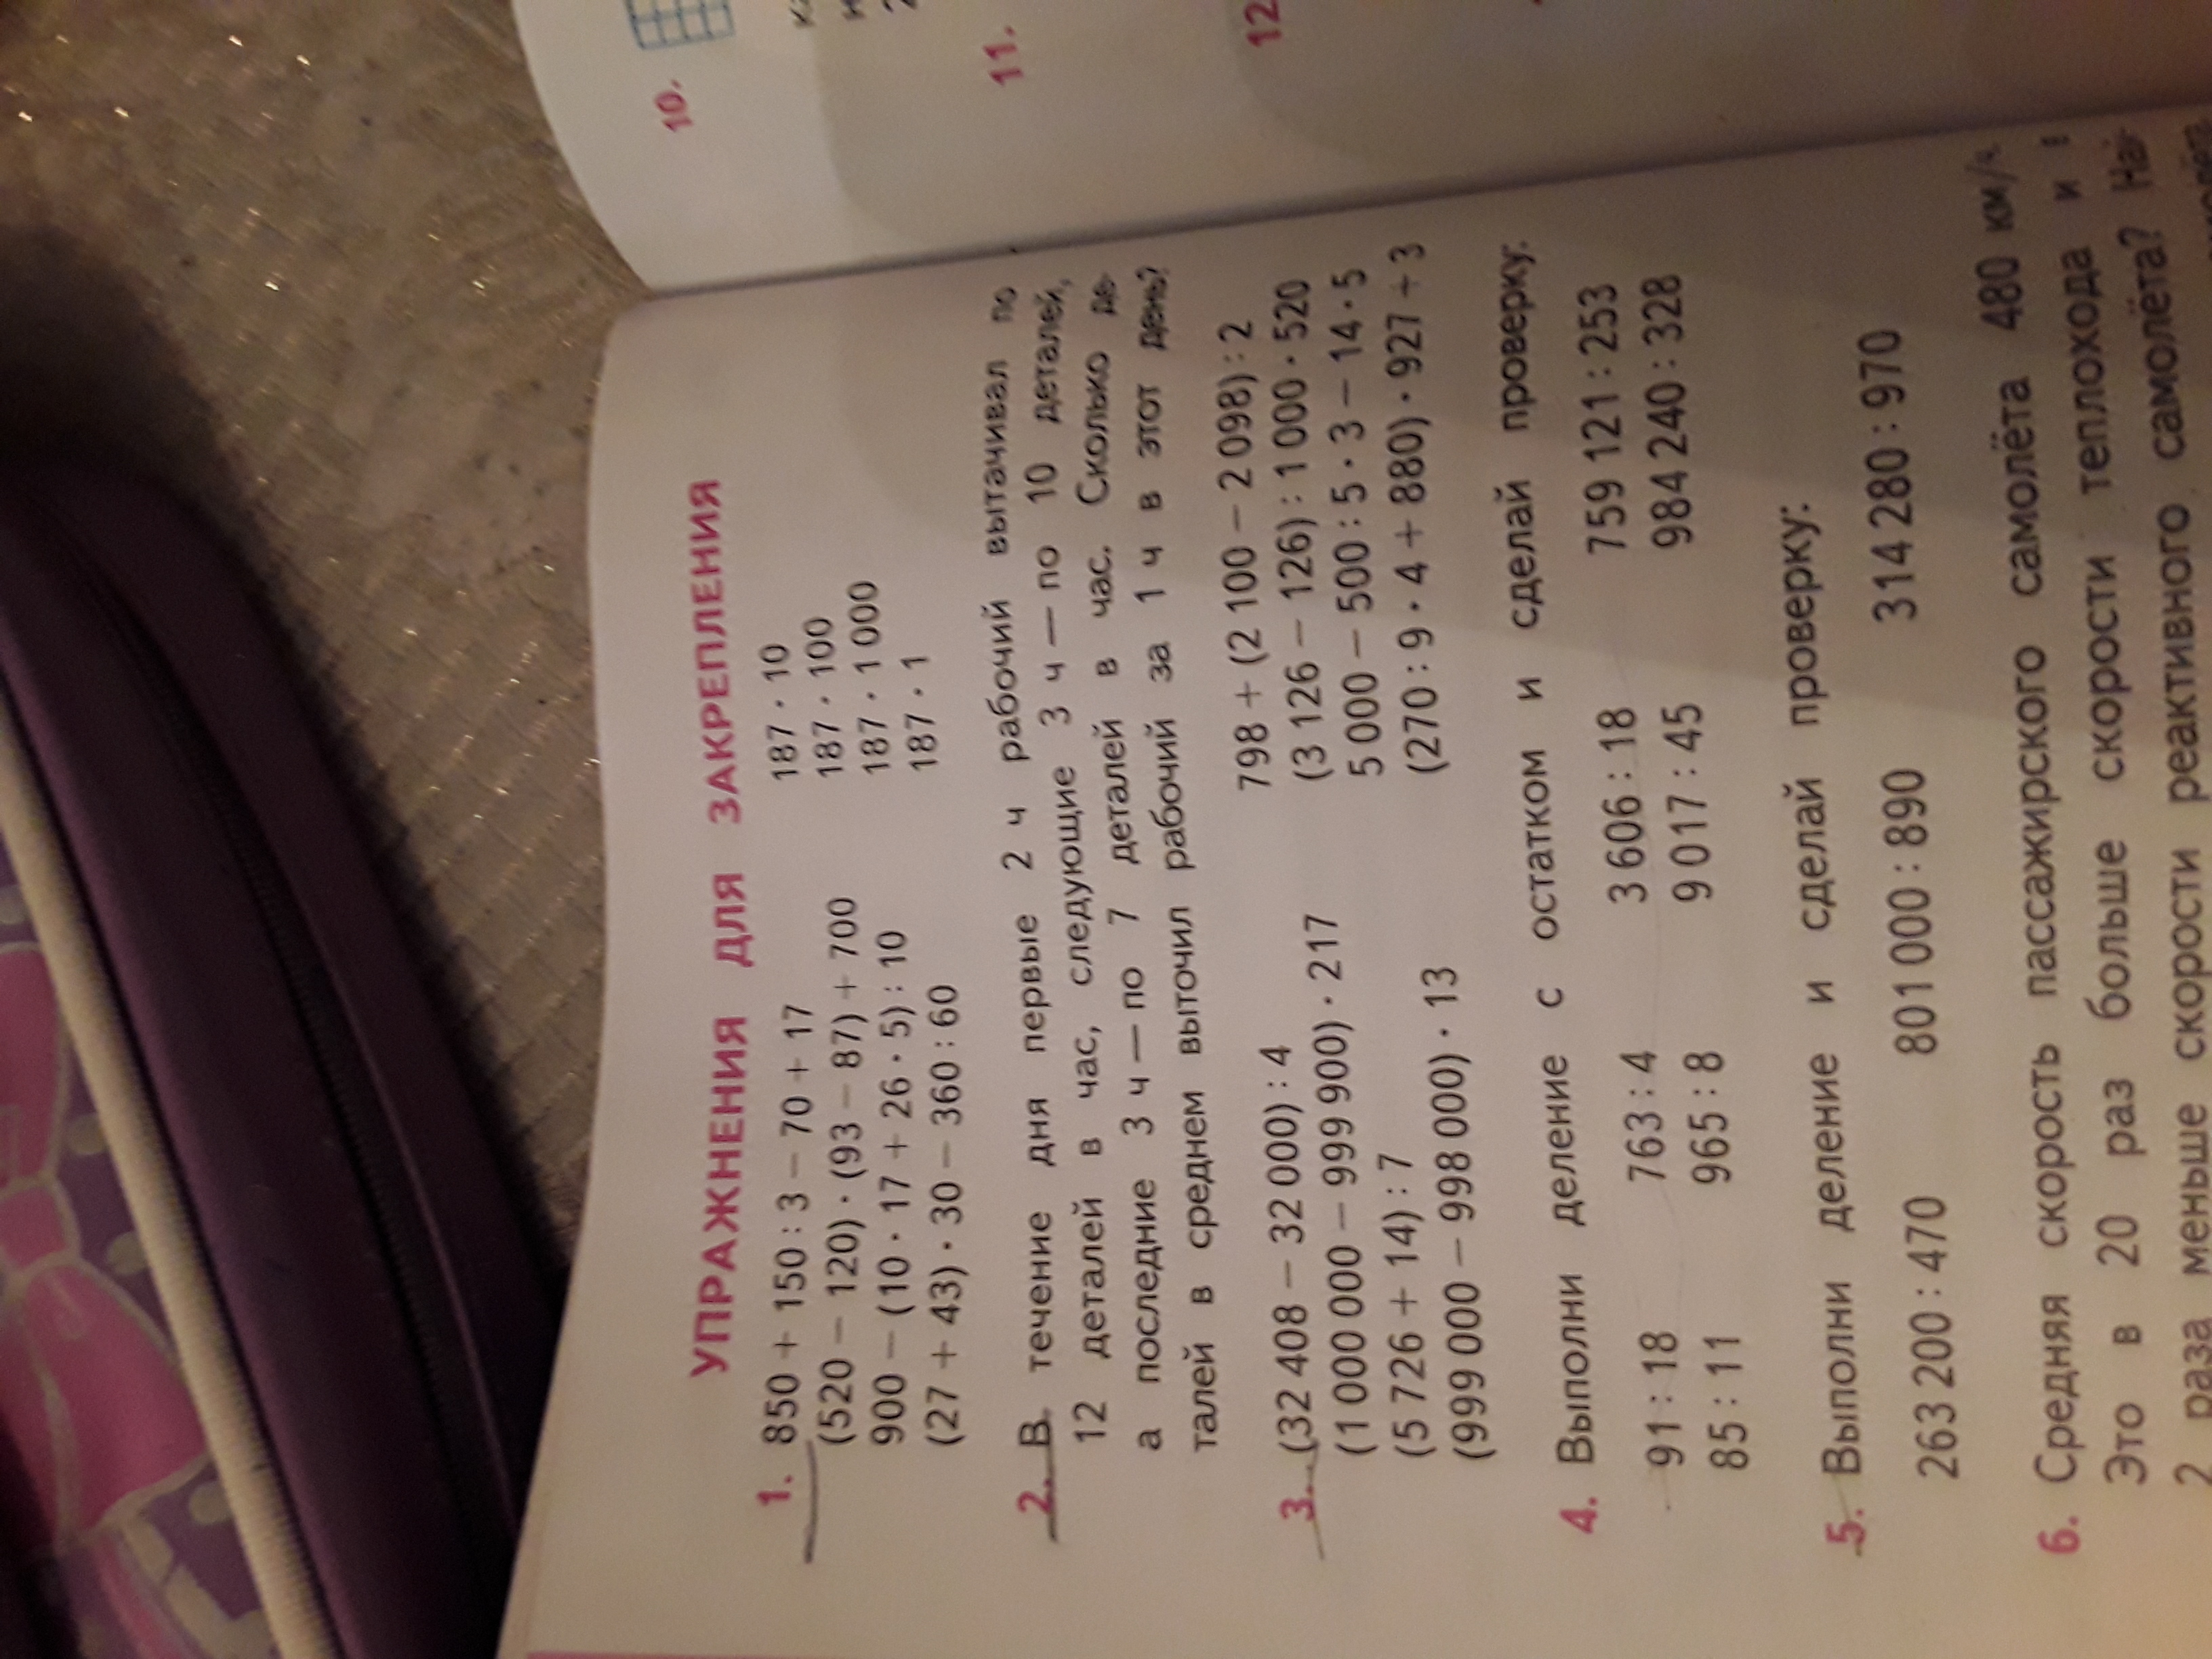 УПРАЖНЕНИЯ ДЛЯ ЗАКРЕПЛЕНИЯ
1. 850 + 150 : 3 − 70 + 17 187 · 10
(520 − 120) · (93 − 87) + 700 187 · 100
900 − (10 · 17 + 26 · 5) : 10 187 · 1 000
(27 + 43) · 30 − 360 : 60 187 · 1
2. В течение дня первые 2 ч рабочий вытачивал по
12 деталей в час, следующие 3 ч — по 10 деталей,
а последние 3 ч — по 7 деталей в час. Сколько де-
талей в среднем выточил рабочий за 1 ч в этот день?
3. (32 408 − 32 000) : 4 798 + (2 100 − 2 098) : 2
(1 000 000 − 999 900) · 217 (3 126 − 126) : 1 000 · 520
(5 726 + 14) : 7 5 000 − 500 : 5 · 3 − 14 · 5
(999 000 − 998 000) · 13 (270 : 9 · 4 + 880) · 927 + 3
4. Выполни деление с остатком и сделай проверку:
91 : 18 763 : 4 3 606 : 18 759 121 : 253
85 : 11 965 : 8 9 017 : 45 984 240 : 328
5. Выполни деление и сделай проверку:
263 200 : 470 801 000 : 890 314 280 : 970
6. Средняя скорость пассажирского самолёта 480 км/ч.
Это в 20 раз больше скорости теплохода и в
2 раза меньше скорости реактивного самолёта? Най-
10.
11.
12